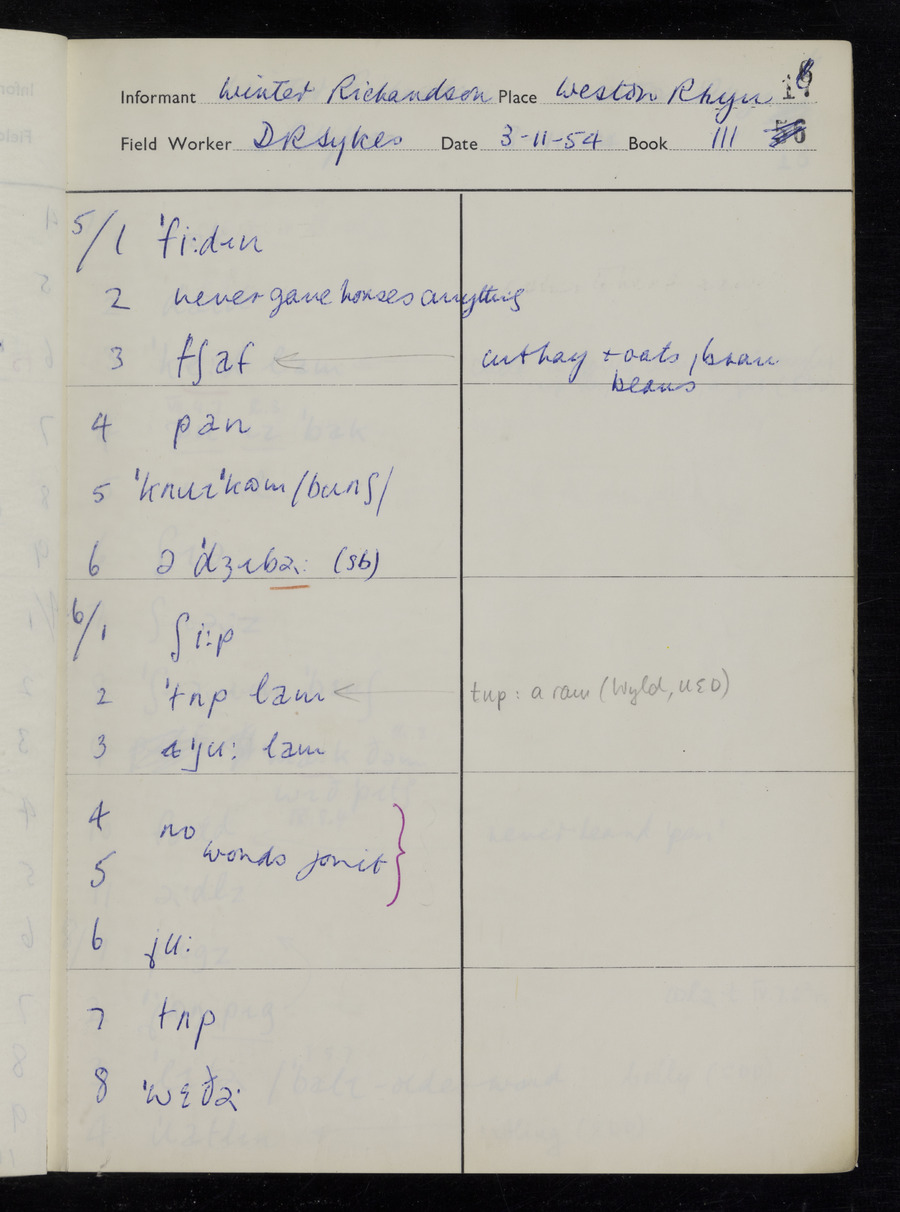 Informant Winter Richardson Place Weston Rhyn
Field Worker DRSykes Date 3-11-54 Book III
5/1 ˈfi:dɪn
2 never gave horses anything
3 tʃaf ← cut hay + oats, bran
beans
4 pan
6 ə ˈdʒɪbə: (sb)
6/1 ʃi:p
2 ˈtʌp lam ← tup: a ram (Wyld, UED)
3 ju: lam
4 no
5 words for it
6 ju:
7 tʌp
8 ˈwɛðə: